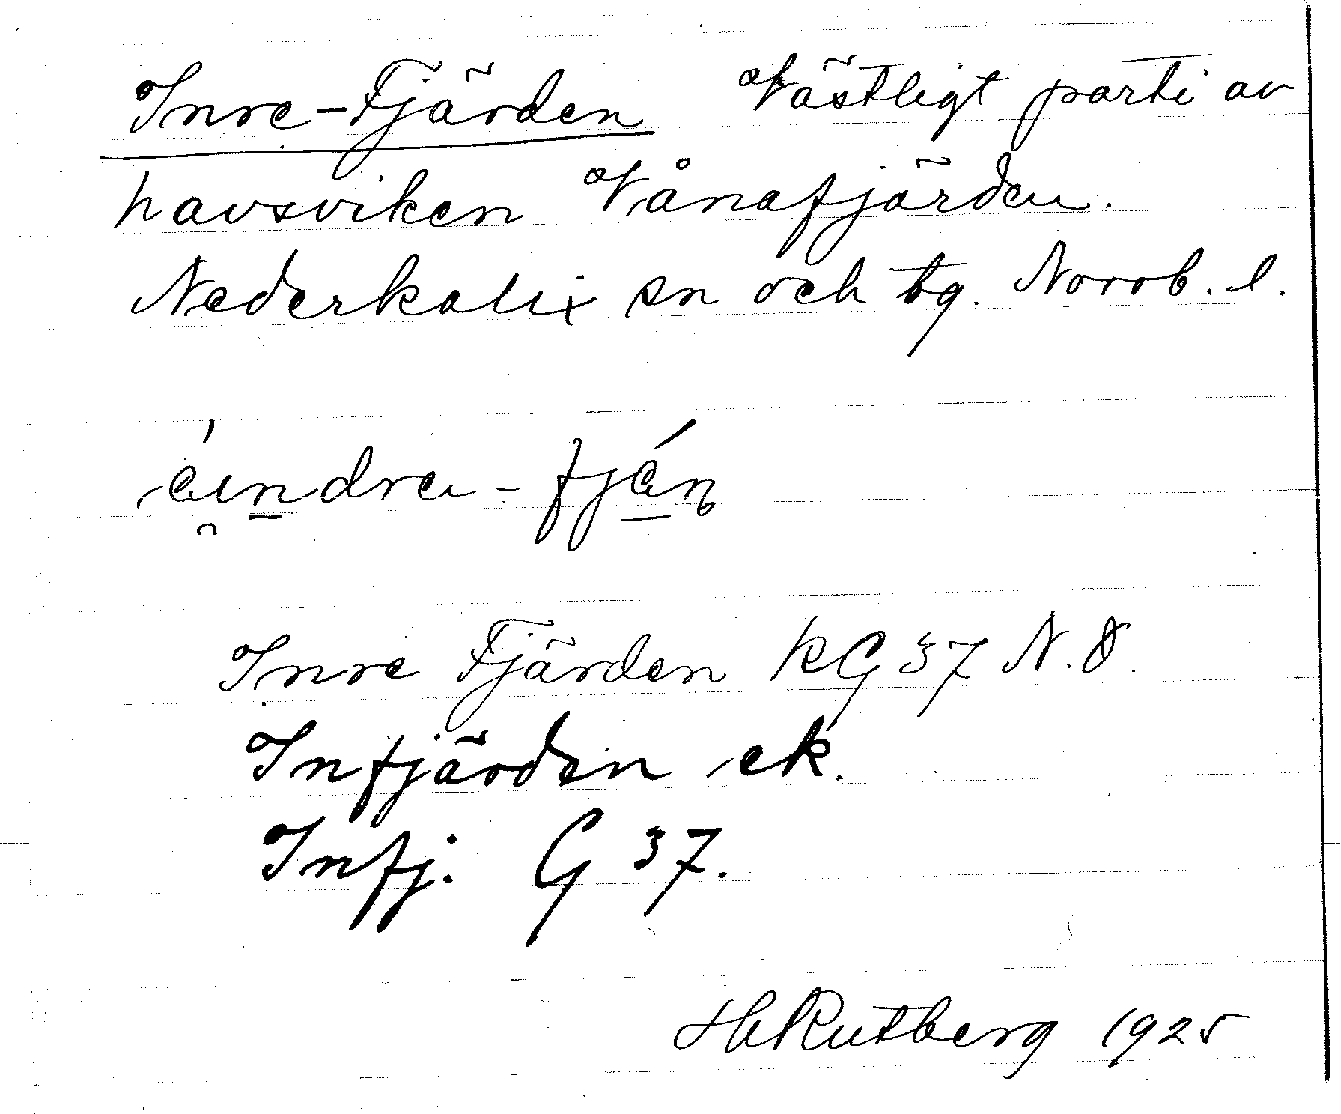 Inre-Fjärden Västligt parti av
havsviken Vånafjärden.
Nederkalix sn och tg. Norrb. l.
Inre Fjärden KG 37 N.O.
Infjärden ek.
Infj. G 37.
H Rutberg 1925